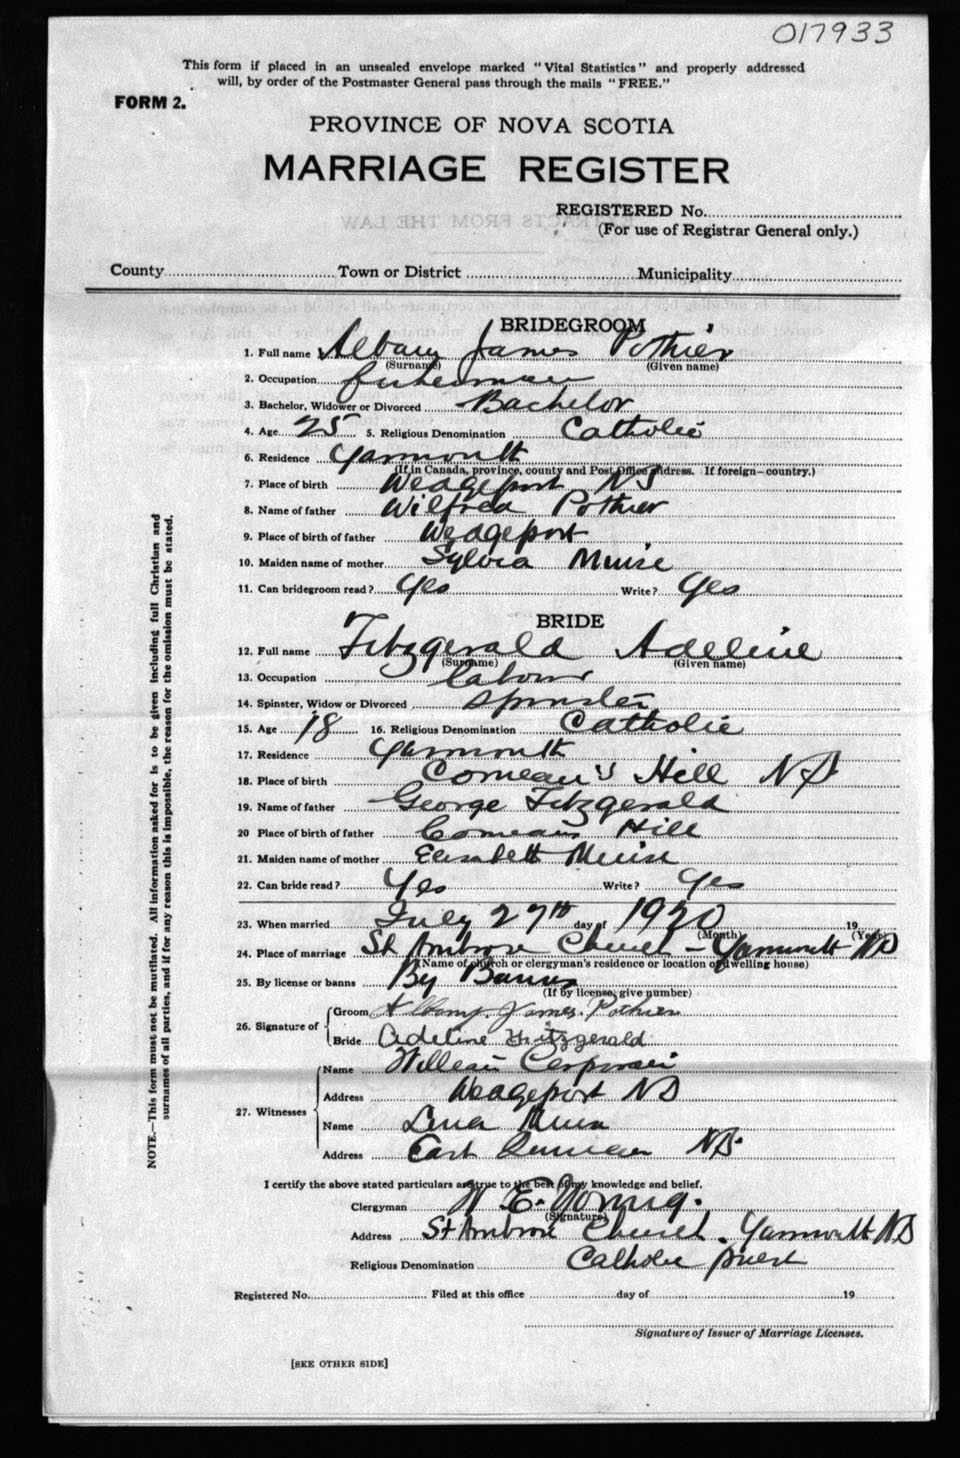 017933
This form if placed in an unsealed envelope marked "Vital Statistics" and properly addressed
will, by order of the Postmaster General pass through the mails "FREE."
FORM 2.
PROVINCE OF NOVA SCOTIA
MARRIAGE REGISTER
REGISTERED No.
(For use of Registrar General only.)
County Town or District Municipality
BRIDEGROOM
1. Full name Albany James Pothier
(Surname) (Given name)
2. Occupation fisherman
3. Bachelor, Widower or Divorced Bachelor
4. Age 25 5. Religious Denomination Catholic
6. Residence Yarmouth
(If in Canada, province, county and Post Office address. If foreign—country.)
7. Place of birth Wedgeport NS
8. Name of father Wilfred Pothier
9. Place of birth of father Wedgeport
10. Maiden name of mother Sylvia Muise
11. Can bridegroom read? Yes Write? Yes
BRIDE
12. Full name Fitzgerald Adeline
(Surname) (Given name)
13. Occupation Labour
14. Spinster, Widow or Divorced Spinster
15. Age 18 16. Religious Denomination Catholic
17. Residence Yarmouth
18. Place of birth Comeau's Hill NS
19. Name of father George Fitzgerald
20 Place of birth of father Comeaus Hill
21. Maiden name of mother Elisabeth Muise
22. Can bride read? Yes Write? Yes
23. When married July 27th day of 1920 19
(Month) (Year)
24. Place of marriage St Ambrose Church - Yarmouth NS
(Name of church or clergyman's residence or location of dwelling house)
25. By license or banns By Banns
(If by license, give number)
26. Signature of Groom Albany James Pothier
Bride Adeline Fitzgerald
27. Witnesses Name William
Address Wedgeport NS
Name Lena Muise
Address East NS
I certify the above stated particulars are true to the best of my knowledge and belief.
Clergyman W E Young.
(Signature)
Address St Ambrose Church - Yarmouth NS
Religious Denomination Catholic priest
Registered No. Filed at this office day of 19
Signature of Issuer of Marriage Licenses.
[SEE OTHER SIDE]
NOTE.—This form must not be mutilated. All information asked for is to be given including full Christian and
surnames of all parties, and if for any reason this is impossible, the reason for the omission must be stated.